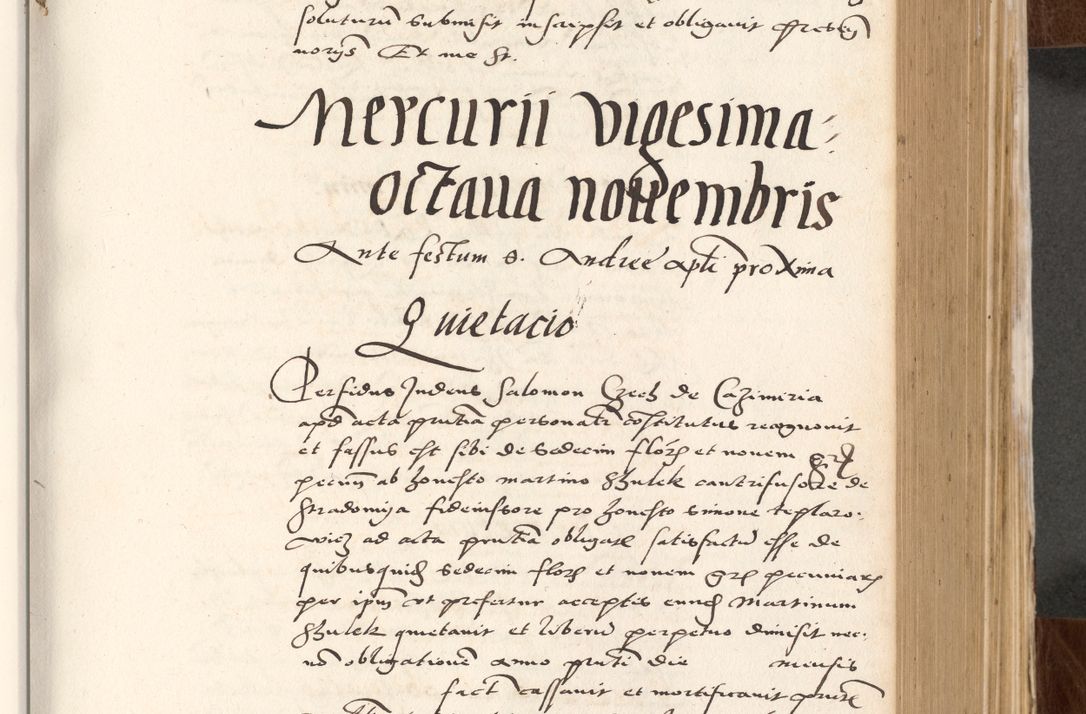 soluturum submisit inscripsit et obligavit
norys Et me st.
Mercurii vigesima
octaua nouembris
Ante festum S. Andree apli proxima
Quietacio
Perfidus Judeus Salomon Czech de Cazimiria
apd acta pntia personalr costitutus recognouit
et fassus est sibi de sedecim floz et nouem grs
pecun ab honesto martino Shulek cantrifusore de
Stradomya fideiussore pro honesto simone teplaro-
wicz ad acta pntia obligate satisfactu esse de
quibusquid sedecim floz et nouem grs pecuniarz
per ipm vt prefertur acceptis eundem Martinum
Shulek quietauit et liberu perpetuo dimisit nec-
no obligatione anno pnti die mensis
fact cassauit et mortificauit